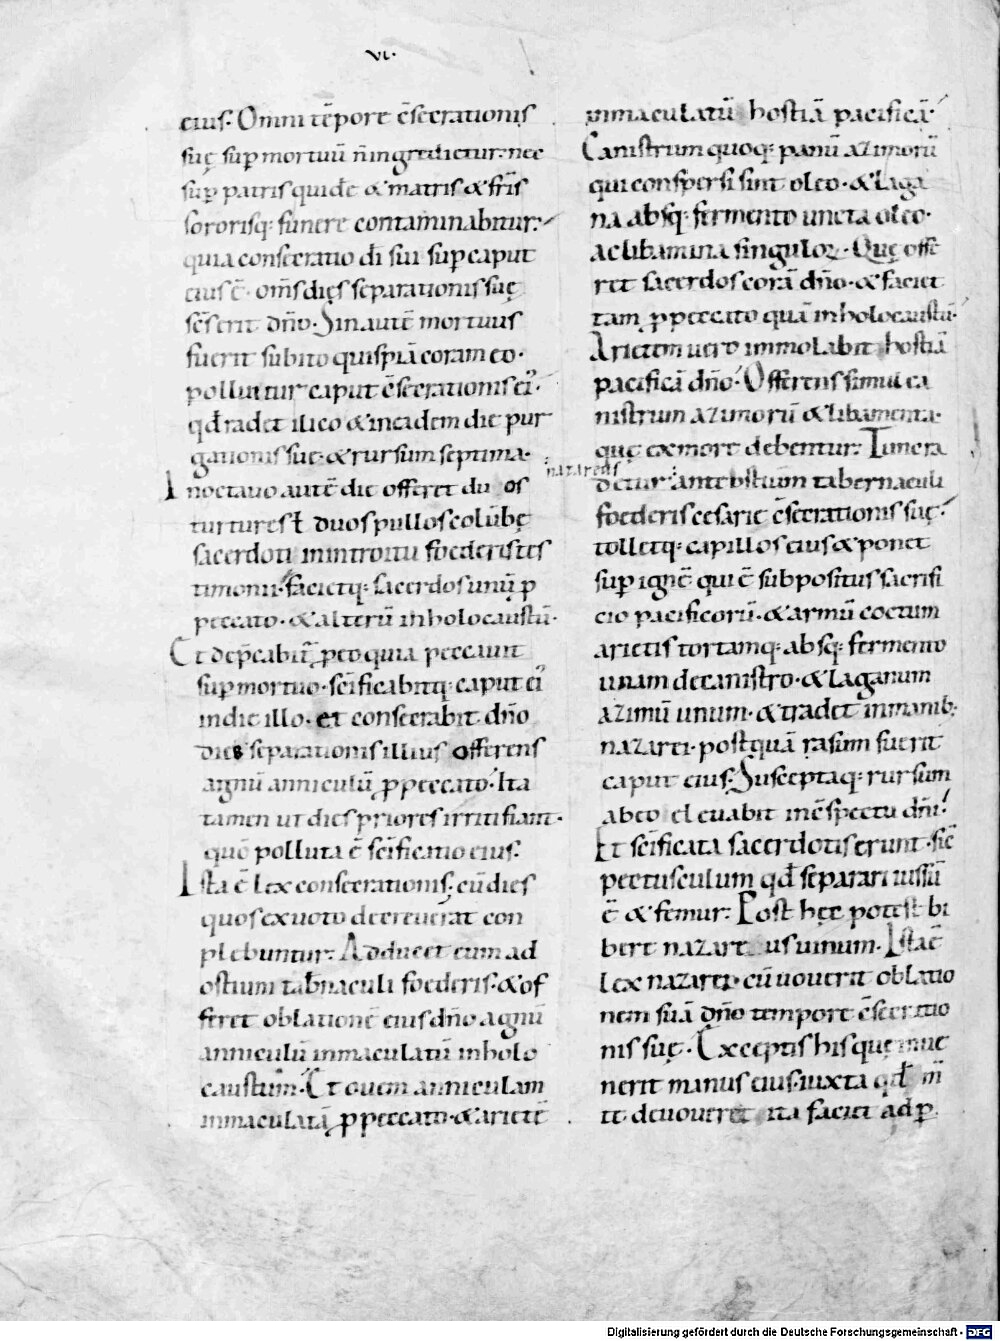 vi.
eius. Omni tēpore c̄secrationis
suę sup̄ mortuū n̄ ingredietur. nec
sup̄ patris quidē & matris & fr̄is
sororisq; funere contaminabitur.
quia consecratio dī sui sup̄ caput
eius ē. om̄s dies separationis suę
sc̄s erit dn̄o. Sin autē mortuus
fuerit subito quispiā coram eo.
polluitur caput c̄secrationis ei'.
qd̄ radet ilico & in eadem die pur
gationis suę. & rursum septima.
In octauo autē die offeret duos
turtures ł duos pullos colūbę
sacerdoti in introitu foederis tes
timonii. facietq; sacerdos unū p̄
peccato. & alterū in holocaustū.
Et dep̄cabit̄ p̄ eo. quia peccauit
sup̄ mortuo. sc̄ificabitq; caput ei'
in die illo. et consecrabit dn̄o
dies separationis illius offerens
agnū anniculū p̄ peccato. Ita
tamen ut dies priores irriti fiant.
quō polluta ē sc̄ificatio eius.
Ista ē lex consecrationis. cū dies
quos ex uoto decreuerat con
plebuntur. Adducet eum ad
ostium tab̄naculi foederis. & of
feret oblationē eius dn̄o agnū
anniculū inmaculatū in holo
caustum. Et ouem anniculam
inmaculatā p̄ peccato. & arietē
inmaculatū hostiā pacificā.
Canistrum quoq; panū azimorū
qui conspersi sint oleo. & laga
na absq; fermento uncta oleo.
ac libamina singuloꝝ. Quę offe
ret sacerdos corā dn̄o. & faciet
tam p̄ peccato quā in holocaustū.
Arietem uero immolabit hostiā
pacificā dn̄o. Offerens simul ca
nistrum azimorū & libamenta.
quę ex more debentur. Tunc ra
nazareus
detur ante ostium tabernaculi
foederis cesarie c̄secrationis suę.
tolletq; capillos eius & ponet
sup̄ ignē qui ē subpositus sacrifi
cio pacificorū. & armū coctum
arietis tortamq; absq; fermento
unam de canistro. & laganum
azimū unum. & tradet in manib;
nazarei. postquā rasum fuerit
caput eius. Susceptaq; rursum
ab eo eleuabit in c̄spectu dn̄i.
Et sc̄ificata sacerdotis erunt. sic̄
pectusculum qd̄ separari iussū
ē & femur. Post hęc potest bi
bere nazareus uinum. Ista ē
lex nazarei. cū uouerit oblatio
nem suā dn̄o tempore c̄secratio
nis suę. Exceptis his quę inue
nerit manus eius. iuxta qd̄ m̄
te deuouerit ita faciet ad p̄
Digitalisierung gefördert durch die Deutsche Forschungsgemeinschaft - DFG